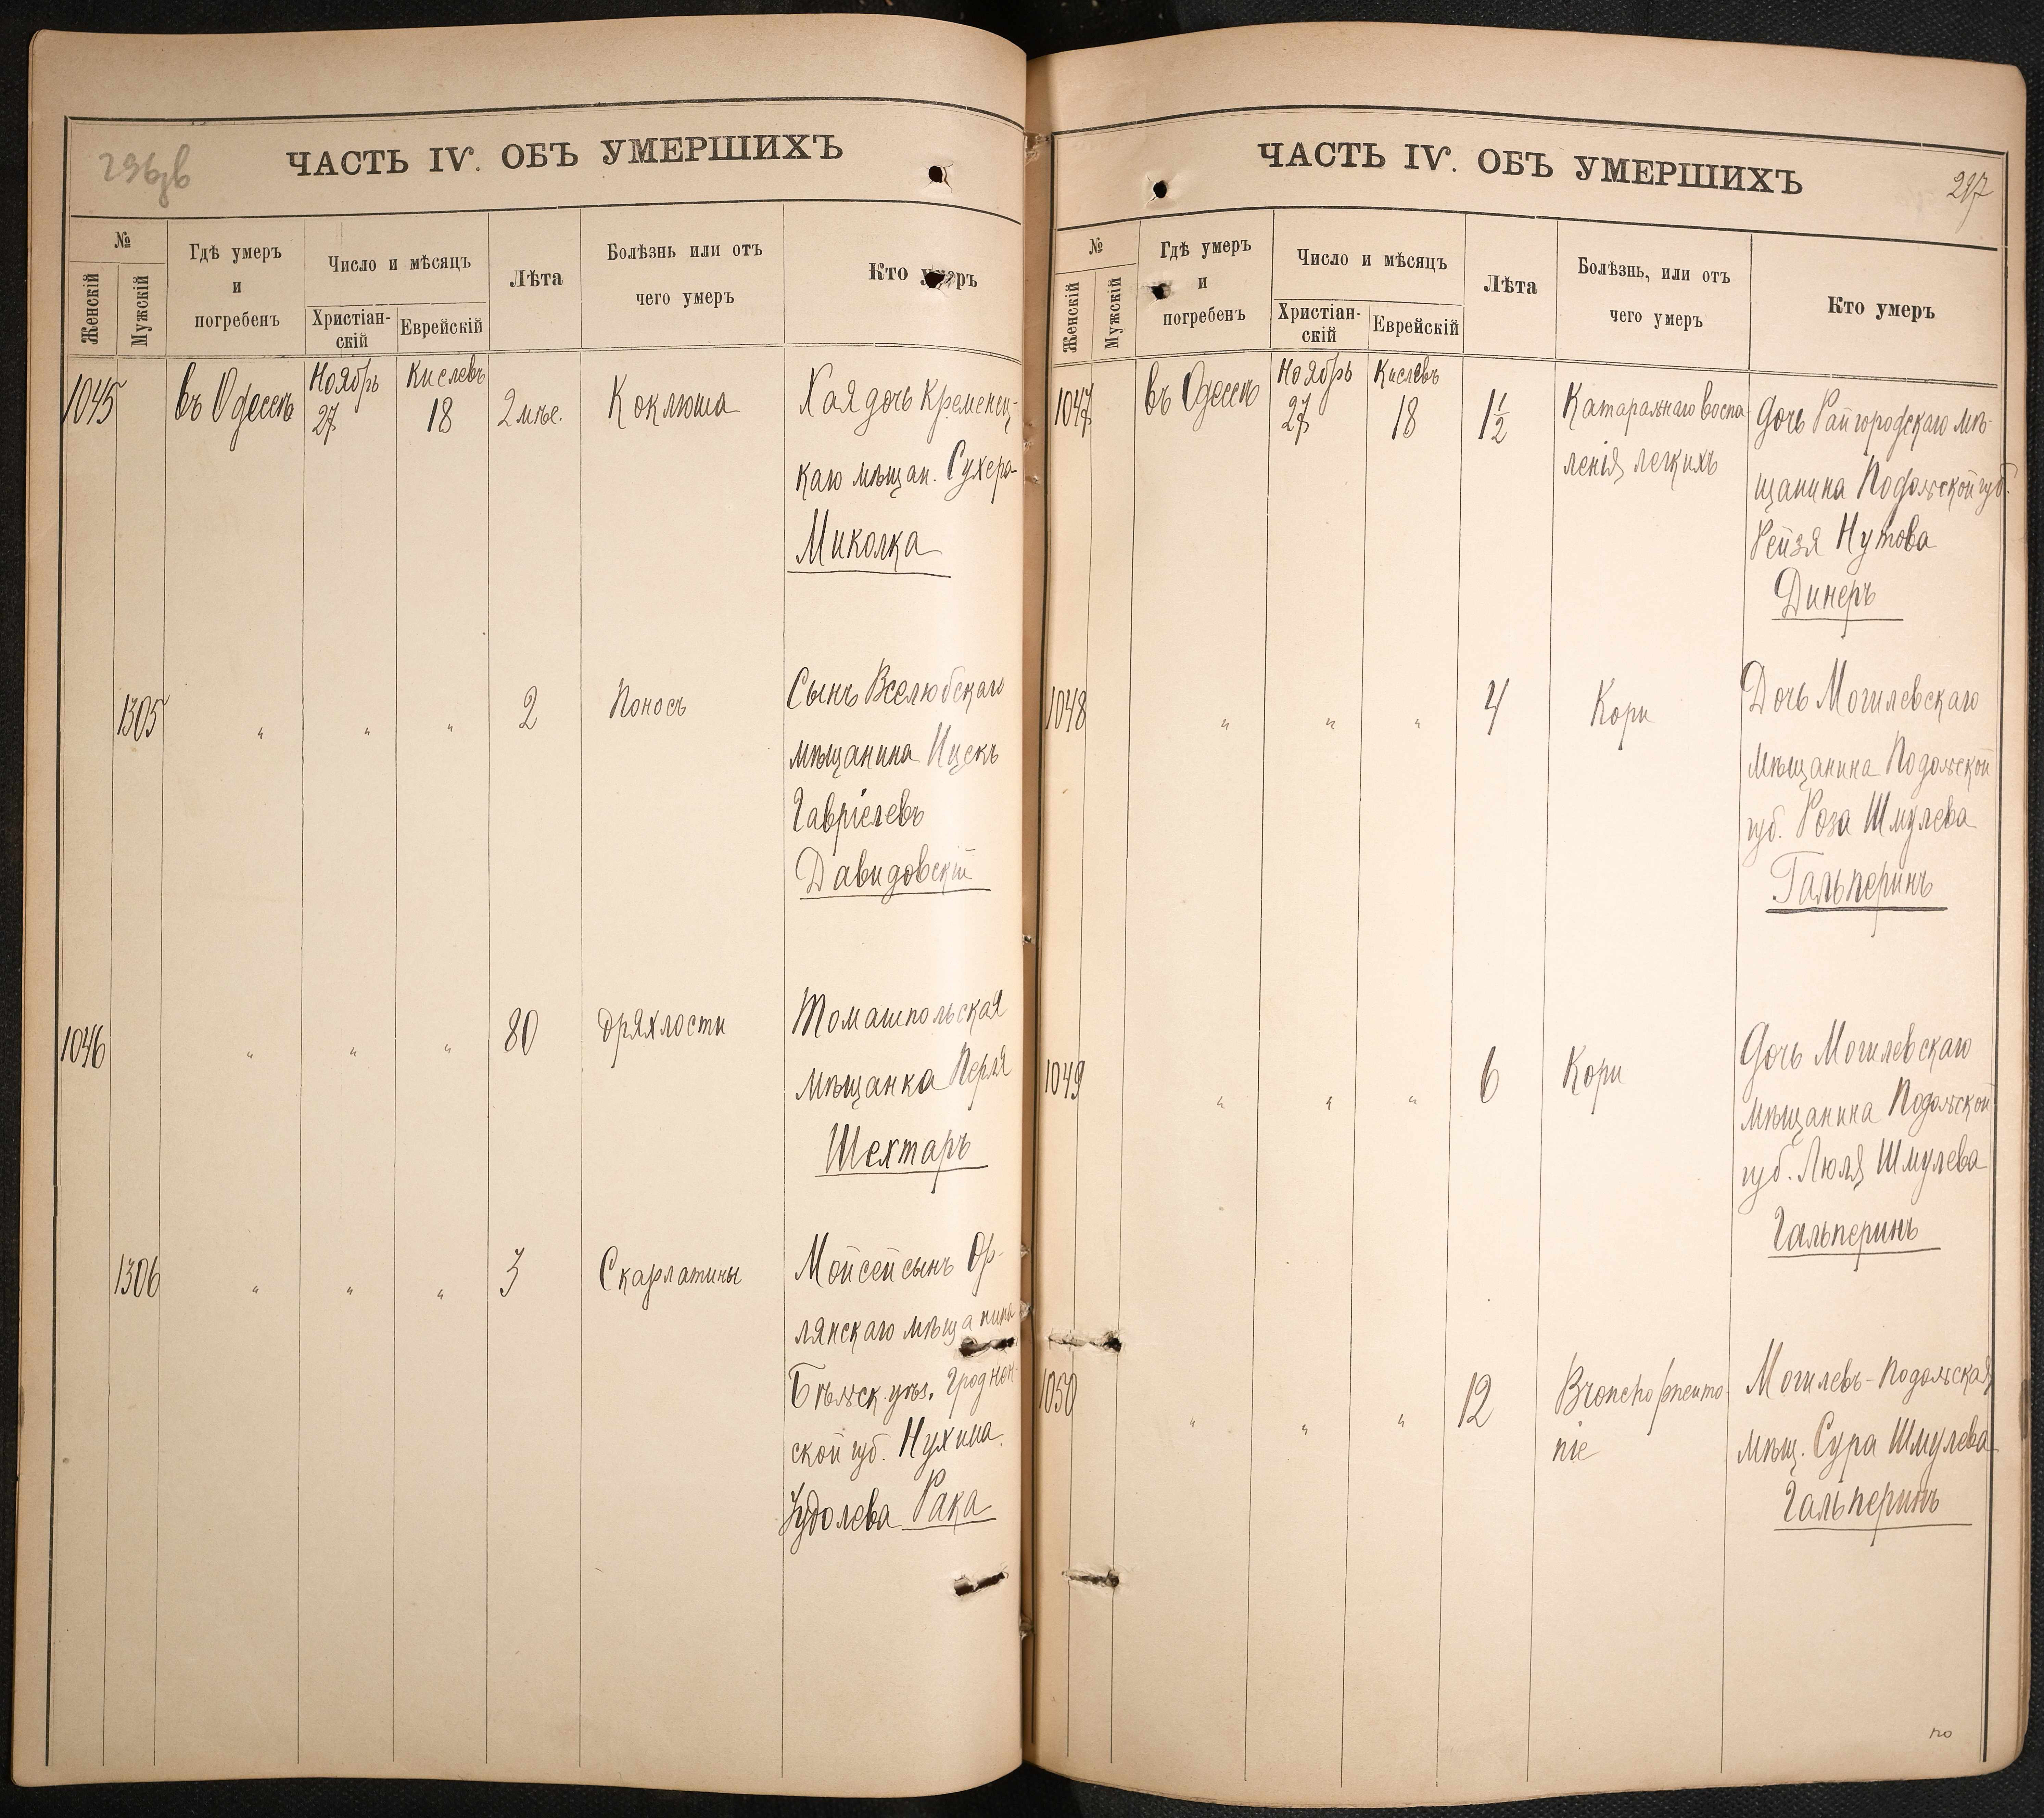 ЧАСТЬ IV. ОБЪ УМЕРШИХЪ
№
Женскій
Мужскій
Гдѣ умеръ
и
погребенъ
Число и мѣсяцъ
Христіан-
скій
Еврейскій
Лѣта
Болѣзнь или отъ
чего умеръ
Кто умеръ
1045
въ Одессѣ
Ноябрь
27
Кислевъ
18
2 мѣс.
Коклюша
Хая дочь Кременец-
каго мѣщан. Сухера
Миколка
1305
" " "
2
Поносъ
Сынъ Вселюбскаго
мѣщанина Ицекъ
Гавріелевъ
Давидовскій
1046
" " "
80
дряхлости
Томашпольская
мѣщанка Перля
Шехтаръ
1306
" " "
3
Скарлатины
Мойсей сынъ Ор-
лянскаго мѣщанина
Бѣльск. уѣз. Гроднен-
ской губ. Нухима
Рака
ЧАСТЬ IV. ОБЪ УМЕРШИХЪ
297
№
Женскій
Мужскій
Гдѣ умеръ
и
погребенъ
Число и мѣсяцъ
Христіан-
скій
Еврейскій
Лѣта
Болѣзнь, или отъ
чего умеръ
Кто умеръ
1047
въ Одессѣ
Ноябрь
27
Кислевъ
18
1½
Катаральнаго воспа-
ленія легкихъ
Дочь Райгородскаго мѣ-
щанина Подольской губ.
Рейзя Нутова
Динеръ
1048
" " "
4
Кори
Дочь Могилевскаго
мѣщанина Подольской
губ. Роза Шмулева
Гальперинъ
1049
" " "
6
Кори
Дочь Могилевскаго
мѣщанина Подольской
губ. Люля Шмулева
Гальперинъ
1050
" " "
12
Bronchopneumo-
nie
Могилевъ-Подольская
мѣщ. Сура Шмулева
Гальперинъ